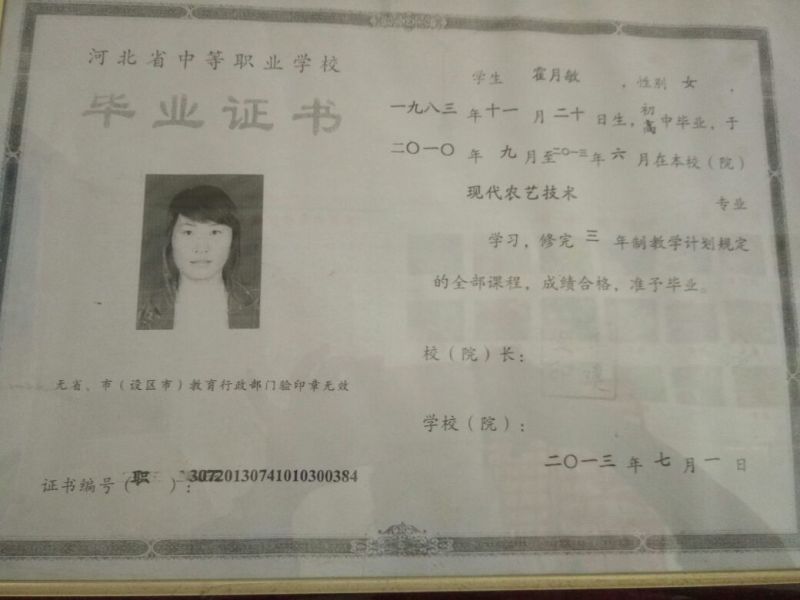 河北省中等职业学校
毕业证书
无省、市（设区市）教育行政部门验印章无效
证书编号（职）：307201307410103​00384
学生 霍月敏 ，性别 女 ，
一九八三 年 十一 月 二十 日生，初高中毕业，于
二〇一〇 年 九 月至 二〇一三 年 六 月在本校（院）
现代农艺技术 专业
学习，修完 三 年制教学计划规定
的全部课程，成绩合格，准予毕业。
校（院）长：
学校（院）：
二〇一三 年 七 月 一 日